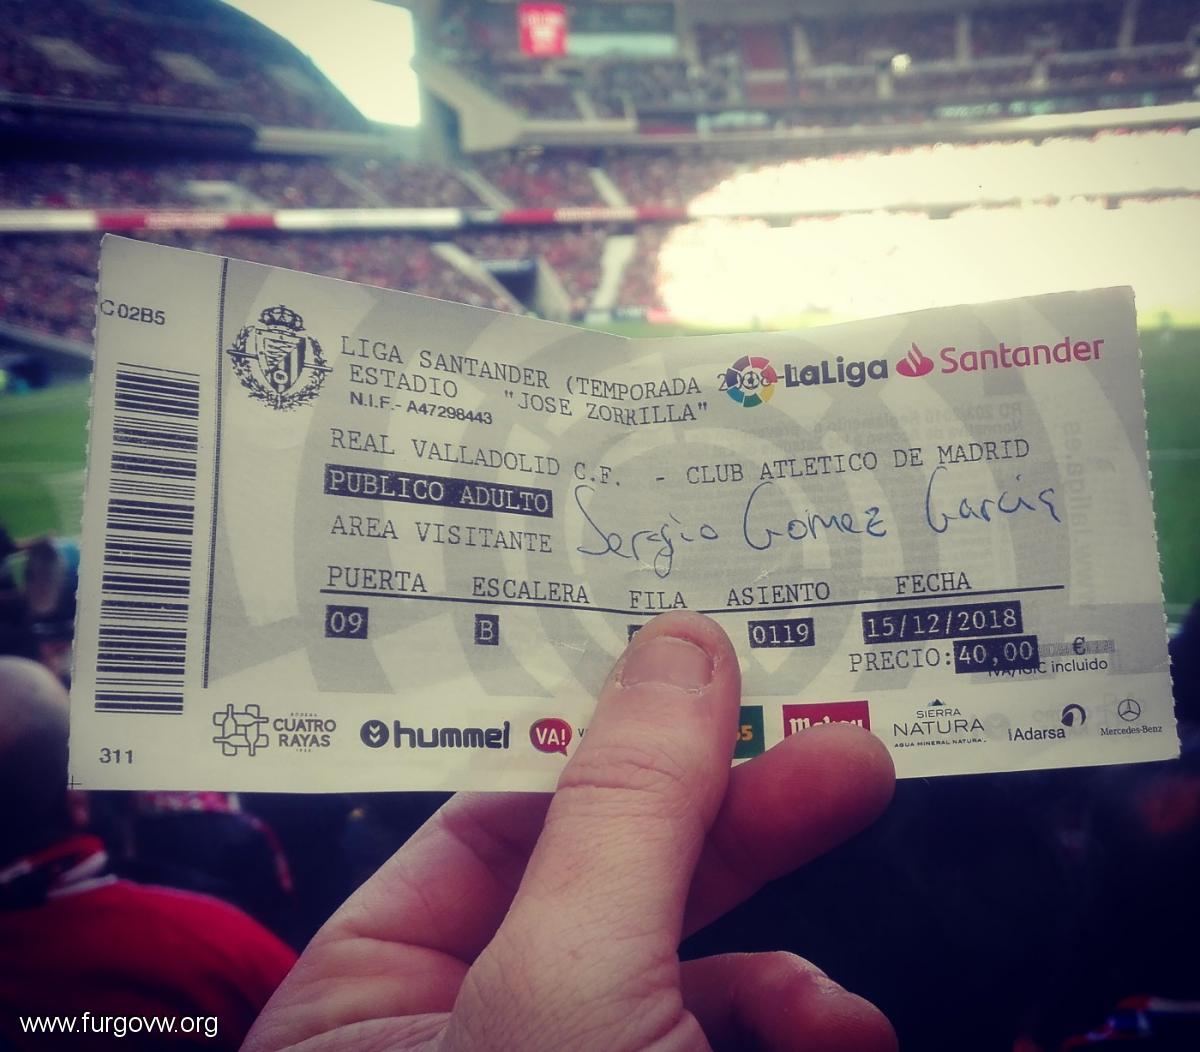 C02B5
LIGA SANTANDER (TEMPORADA
LaLiga Santander
ESTADIO "JOSE ZORRILLA"
N.I.F.- A47298443
REAL VALLADOLID C.F. - CLUB ATLETICO DE MADRID
PUBLICO ADULTO
Sergio Gomez Garcia
AREA VISITANTE
PUERTA ESCALERA FILA ASIENTO FECHA
09 B 0119 15/12/2018
PRECIO: 40,00 €
incluido
BODEGA CUATRO RAYAS
hummel
VA!
SIERRA NATURA
AGUA MINERAL NATURAL
iAdarsa
Mercedes-Benz
311
www.furgovw.org